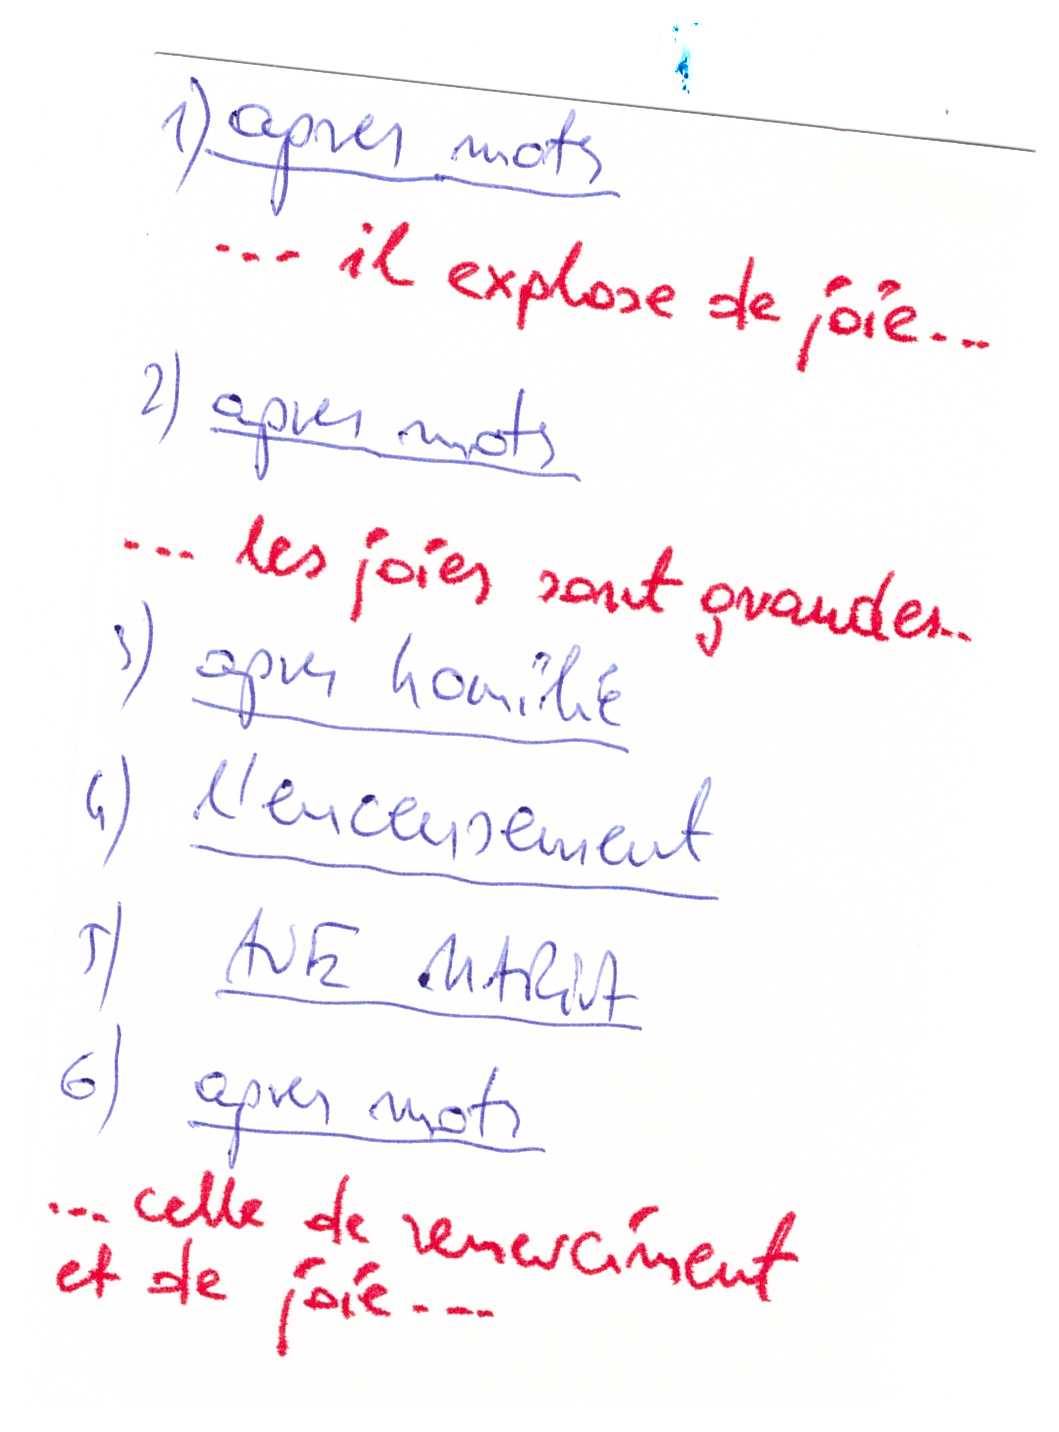 1) apres mots
... il explose de joie...
2) apres mots
... les joies sont grandes..
3) apres homilie
4) l'encensement
5) AVE MARIA
6) apres mots
... celle de remerciment
et de joie....